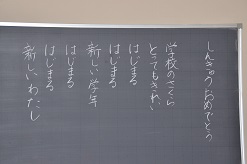 しんきゅうおめでとう
学校のさくら
とてもきれい
はじまる
はじまる
新しい学年
はじまる
はじまる
新しいわたし